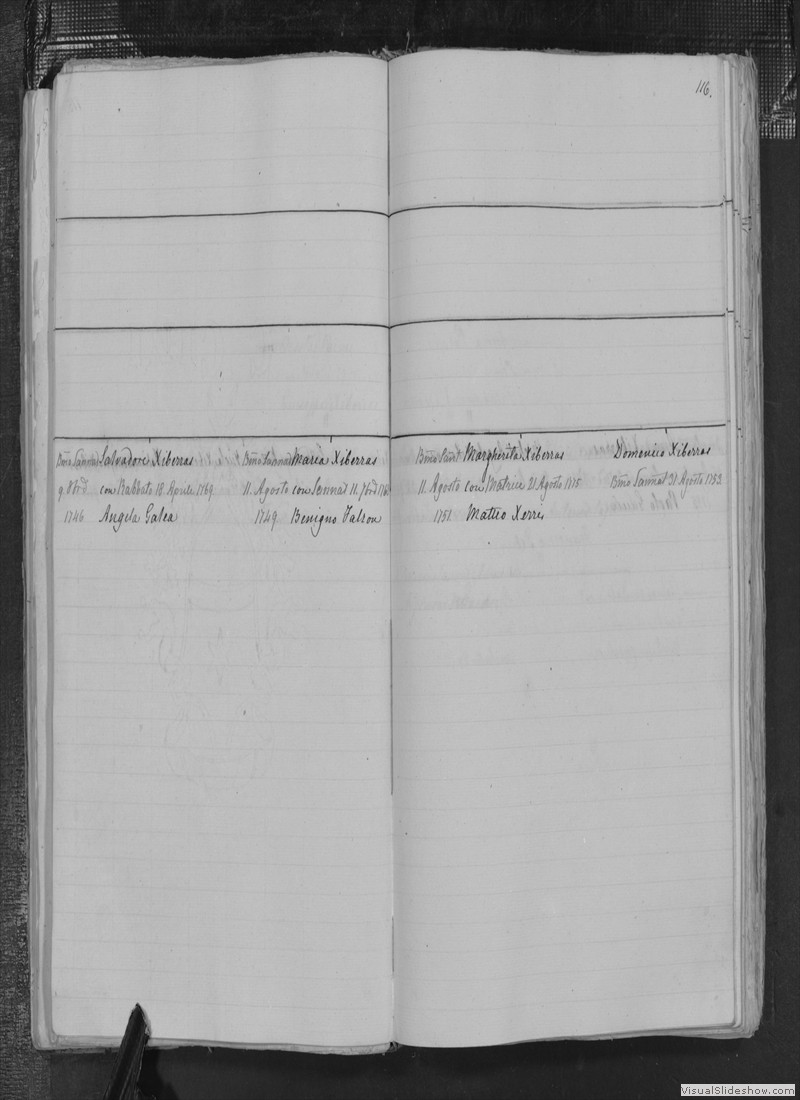 116.
Bmo Sannat Salvadore Xiberras
9 8brd con Rabbato 18 Aprile 1769
1746 Angela Galea
Bmo Sannat Maria Xiberras
11 Agosto con Sennat 11 7brd
1749 Benigno Falson
Bmo Sant Margherita Xiberras
11 Agosto con Matrice 21 Agosto 1775
1751 Matteo Xerri
Domenico Xiberras
Bmo Sannat 31 Agosto 1753
VisualSlideshow.com